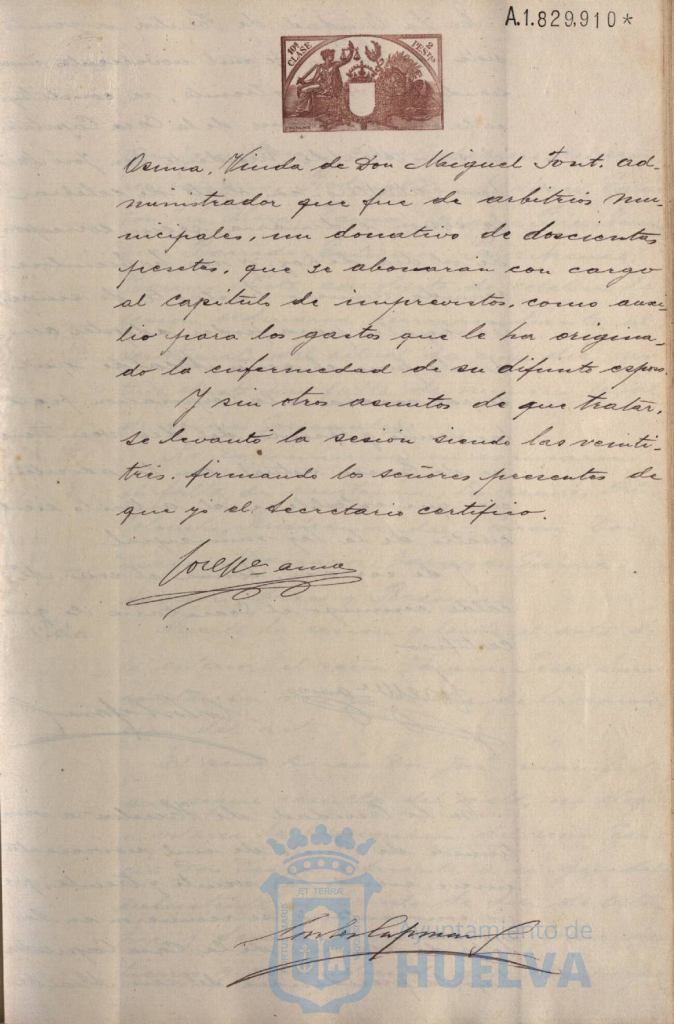 A.1.829,910*
10ª CLASE
2 PESTAS
Osuna, Viuda de Don Miguel Font. ad-
ministrador que fue de arbitrios mu-
nicipales, un donativo de doscientas
pesetas, que se abonarán con cargo
al capítulo de imprevistos, como auxi-
lio para los gastos que le ha origina-
do la enfermedad de su difunto esposo.
Y sin otros asuntos de que tratar,
se levantó la sesión siendo las veinti-
trés, firmando los señores presentes de
que yo el Secretario certifico.
ET TERRÆ
Ayuntamiento de
HUELVA